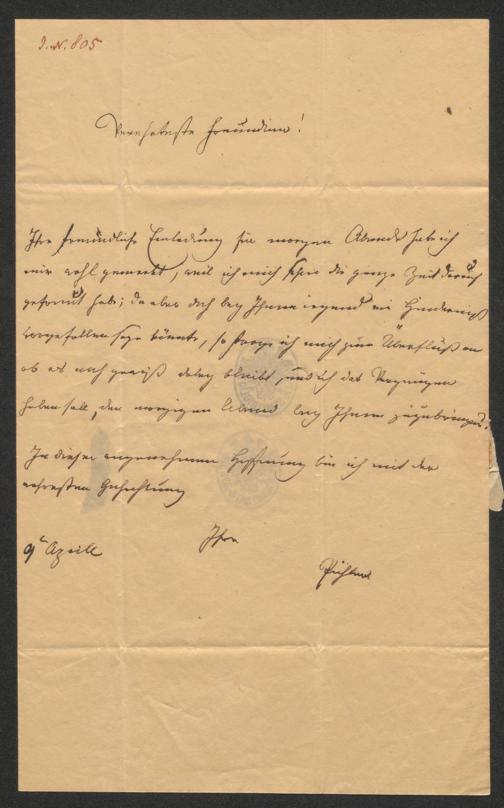 I. N. 805
Verehrteste Freundinn!
Ihre freundliche Einladung für morgen Abends habe ich
mir wohl gemerkt, weil ich mich schon die ganze Zeit darauf
gefreut habe; da aber doch bey Ihnen irgend ein Hinderniß
vorgefallen seyn könnte, so frage ich mich zum Überfluß an
ob es noch gewiß dabey bleibt, und ich das Vergnügen
haben soll, den morgigen Abend bey Ihnen zuzubringen.
In dieser angenehmen Hoffnung bin ich mit der
wahresten Hochachtung
Ihre
9t Aprill
Pichler